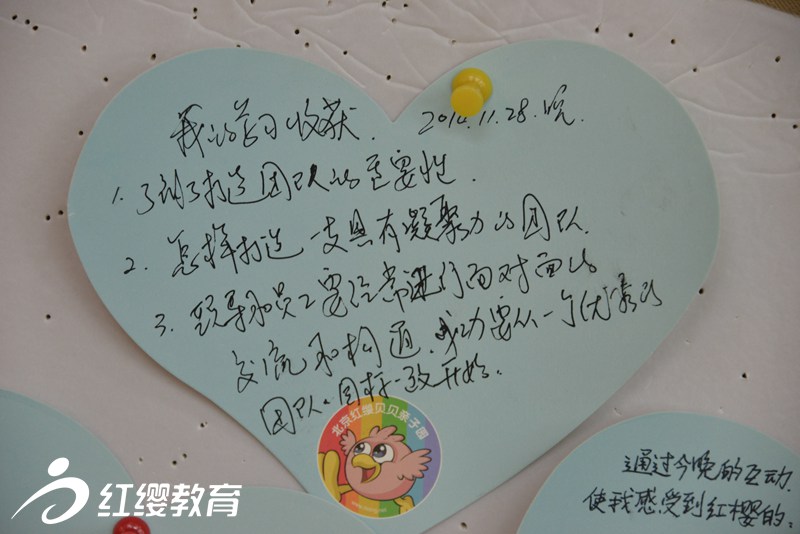 我的学习收获. 2014.11.28.晚.
1. 了解了打造团队的重要性.
2. 怎样打造一支具有凝聚力的团队.
3. 领导和员工要经常进行面对面的
交流和沟通,成功要从一个优秀的
团队、目标一致开始.
北京红缨贝贝亲子园
红缨教育
通过今晚的互动.
使我感受到红樱的: